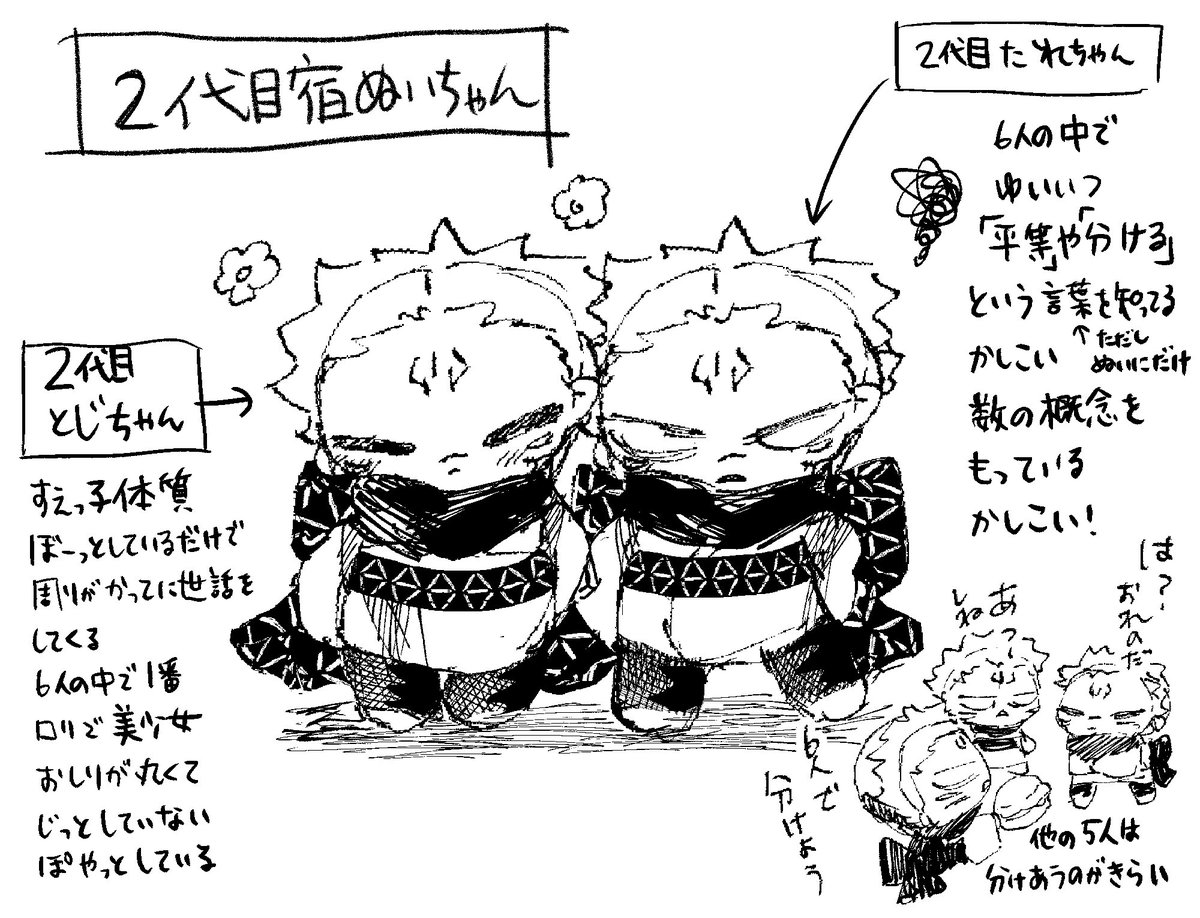 2代目宿ぬいちゃん
2代目
とじちゃん
すえっ子体質
ぼーっとしているだけで
周りがかってに世話を
してくる
6人の中で1番
ロリで美少女
おしりが丸くて
じっとしていない
ぽやっとしている
2代目たれちゃん
6人の中で
ゆいいつ
「平等」や「分ける」
という言葉を知ってる
かしこい
↑ただし
ぬいにだけ
数の概念を
もっている
かしこい!
は?
おれのだ
あ〜?
しね
6人で
分けよう
他の5人は
分けあうのがきらい